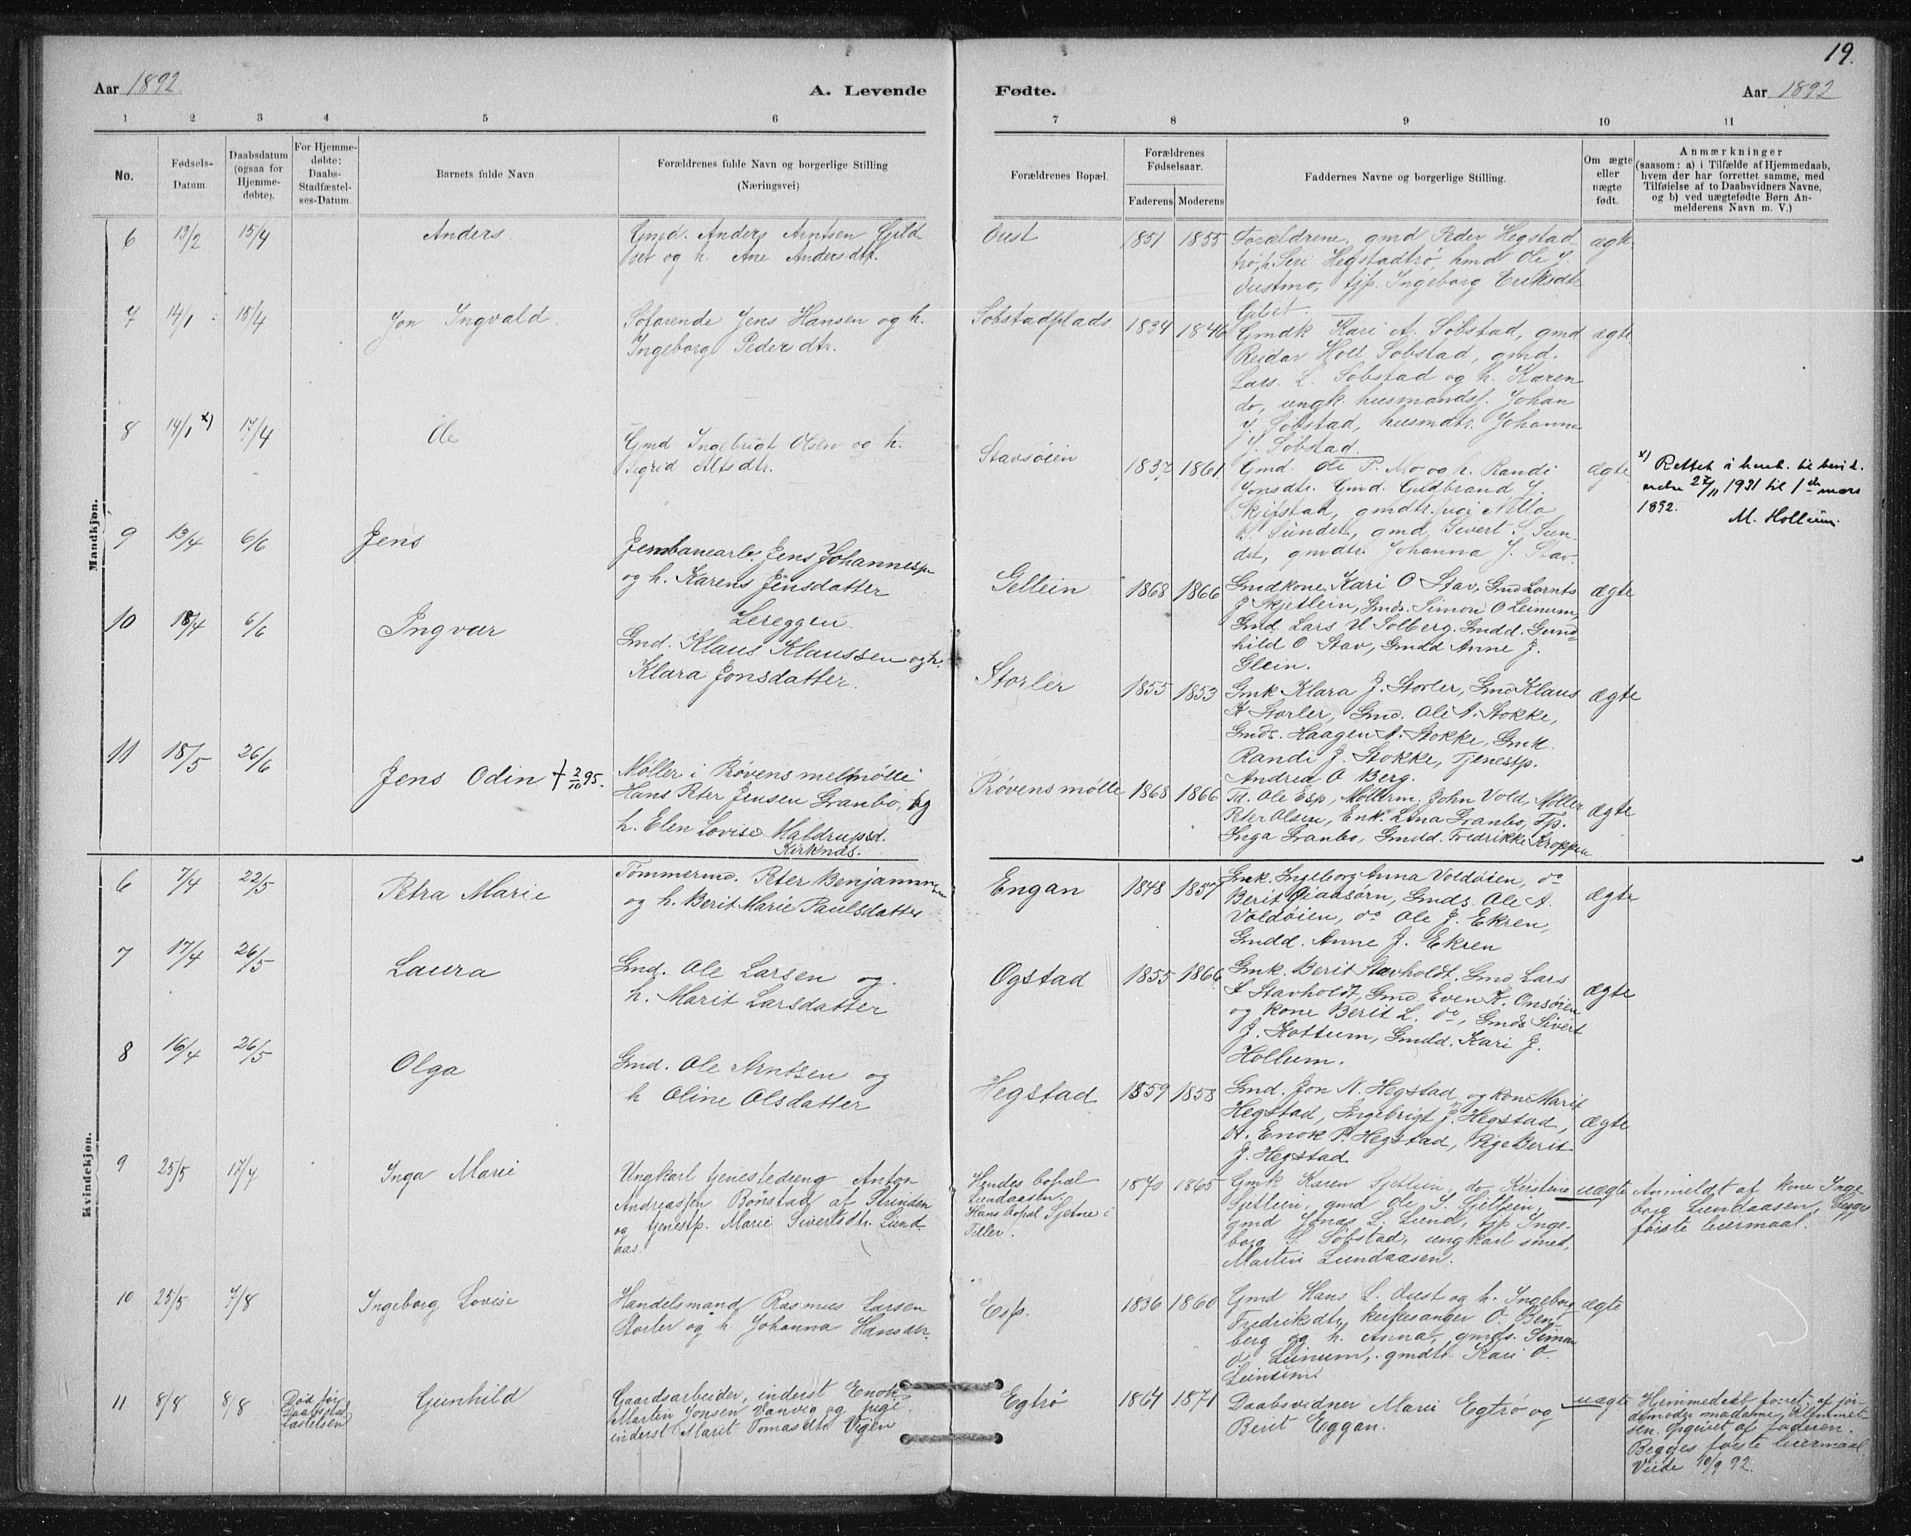 19.
Aar 1892.
A. Levende
Fødte.
Aar 1892
1 2 3 4 5 6 7 8 9 10 11
No.
Fødsels-
Datum.
Daabsdatum
(ogsaa for
Hjemme-
døbte).
For Hjemme-
døbte:
Daabs-
Stadfæstel-
ses-Datum.
Barnets fulde Navn
Forældrenes fulde Navn og borgerlige Stilling
(Næringsvei)
Forældrenes Bopæl.
Forældrenes
Fødselsaar.
Faderens Moderens
Faddernes Navne og borgerlige Stilling.
Om ægte
eller
uægte
født.
Anmærkninger
(saasom: a) i Tilfælde af Hjemmedaab,
hvem der har forrettet samme, med
Tilføielse af to Daabsvidners Navne,
og b) ved uægtefødte Børn An-
melderens Navn m. V.)
Mandkjøn.
6 13/2 15/4 Anders
Gmd. Anders Arntsen Gild
set og h. Ane Andersdtr.
Oust 1851 1855
Forældrene, gmd Peder Hegstad
trø, h. Siri Hegstadtrø, hmd Ole J.
Oustmo, tjp. Ingeborg Eriksdtr
ægte
7 14/1 18/4 Jon Ingvald
Søfarende Jens Hansen og h.
Ingeborg Pedersdtr.
Sobstadplads 1834 1846
Gmdk Kari A. Sobstad, gmd
Reidar Holl Sobstad, gmd.
Lars L. Sobstad og h. Karen
do, ungk. husmandsf. Johan
J. Søbstad, husmdtr. Johanna
J. Søbstad.
ægte
8 14/1 x) 17/4 Ole
Gmd Ingebrigt Olsen og h.
Sigrid Altsdtr.
Stavsøien 1837 1861
Gmd. Ole P. Mo og h. Randi
Jonsdtr. Gmd. Guldbrand J.
Skjefstad, gmdtr.
Sundet, gmd Sivert S. Sun-
det, gmdtr. Johanna J. Stav.
ægte
x) Rettet i henh. til
27/11 1931 til 1ste mars
1892.
M. Hollum.
9 13/4 6/6 Jens
Jernbanearb. Jens Johannesen
og h. Karen Jensdatter
Lereggen.
Gellein 1868 1866
Gmdkone Kari O Stav, Gmd Lornts
J Skjetlein, Gmds. Simon O Leinum,
Gmd. Lars H Solberg. Gmdd. Gund-
hild O Stav, Gmdd Anne J.
Glein.
ægte
10 18/4 6/6 Ingvar
Gmd. Klaus Klaussen og h.
Klara Jonsdatter.
Storler 1855 1853
Gmk Klara J. Storler, Gmd Klaus
K Storler, Gmd. Ole A. Stokke,
Gmds. Haagen A. Stokke, Gmk.
Randi J. Stokke, Tjenestp.
Andrea O Berg.
ægte
11 18/5 26/6 Jens Odin + 2/10 95.
Møller i Prøvens melmølle
Hans Peter Jensen Granbo, og
h. Elen Lovise Maldrupsd.
Kirknæs.
Prøvens mølle 1868 1866
Td. Ole Esp, Møllerm. John Vold, Møller
Peter Olsen, Enk. Lina Granbo, Tjp.
Inga Granbo, Gmdd. Fredrikke Kroppen
ægte
Kvindekjøn.
6 7/4 22/5 Petra Marie
Tømmermd. Peter Benjaminsen
og h. Berit Marie Paulsdatter
Engan 1848 1857
Gmk. Ingeborg Anna Voldøien, do
Berit Giansørn, Gmds. Ole A.
Voldøien, do Ole J. Ekren,
Gmdd. Anne J. Ekren
ægte
7 17/4 26/5 Laura
Gmd. Ole Larsen og
h. Marit Larsdatter
Ogstad 1855 1866
Gmk. Berit Stavholdt. Gmd Lars
L Stavholdt, Gmd. Even K. Onsøien
og kone Berit L. do, Gmds Sivert
J. Kottum, Gmdd. Kari J.
Hollum.
ægte
8 16/4 26/5 Olga
Gmd. Ole Arntsen og
h Oline Olsdatter
Hegstad 1859 1858
Gmd. Jon N. Hegstad og kone Marit
Hegstad, Ingebrigt J. Hegstad,
Enok P. Hegstad, Pige Berit
J. Hegstad
ægte
9 25/5 17/4 Inga Marie
Ungkarl tjenestedreng Anton
Andreassen Bønstad af Strinden
og tjenestp. Marie Sivertsdtr. Lund-
aas.
Hendes bopæl
Lundaasen.
Hans bopæl Sjetne i
Tiller.
1870 1865
Gmk Karen Sjetlein, do Kirstine
Sjetlein, gmd Ole S. Sjetlein,
gmd Jonas L. Lund, tjp Inge-
borg S. Søbstad, ungkarl smed,
Martin Lundaasen.
uægte
Anmeldt af kone Inge
borg Lundaasen, Begges
første leiermaal.
10 25/5 7/8 Ingeborg Lovise
Handelsmand Rasmus Larsen
Storler og h. Johanna Hansdtr.
Esp. 1836 1860
Gmd Hans L. Oust og h. Ingeborg
Fredriksdtr, kirkesanger O. Bent
berg og h. Anna, gmds. Simon
O. Leinum, gmdtr. Kari O.
Leinum
ægte
11 8/8 8/8
Død før
Daabsstad-
fæstelsen
Gunhild
Gaardsarbeider, inderst Enok
Martin Jonsen Vanvig og pige
inderst Marit Tomasdtr. Vigen
Egtrø 1864 1871
Daabsvidner Marie Egtrø og
Berit Eggan.
uægte
Hjemmedøbt forret. af jor-
demoder madame Klemmet-
sen. Opgivet af faderen.
Begges første leiermaal
Viede 10/9 92.